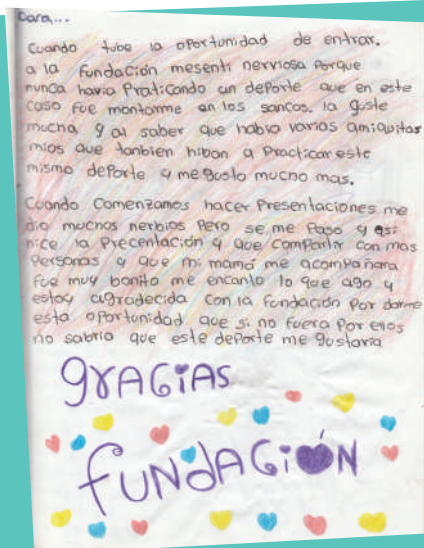 Cara...
Cuando tube la oportunidad de entrar.
a la fundación mesenti nerviosa porque
nunca havia Praticando un deporte que en este
caso fue montarme en los sancos. la guste
mucha y al saber que habia varias amiguitas
mios que tanbien hiban a Practicar este
mismo deporte y me gusto mucho mas.
Cuando Comenzamos hacer Presentaciones me
dio muchos nerbios Pero se me Paso y asi
hice la Precentación y que compartir con mas
Personas y que mi mamá me acompañara
fue muy bonito me encanto lo que ago y
estoy agradecida con la fundación por darme
esta oportunidad que si no fuera Por ellos
no sabria que este deporte me gustaria
gRAGiAS
fUNdAGiÓN